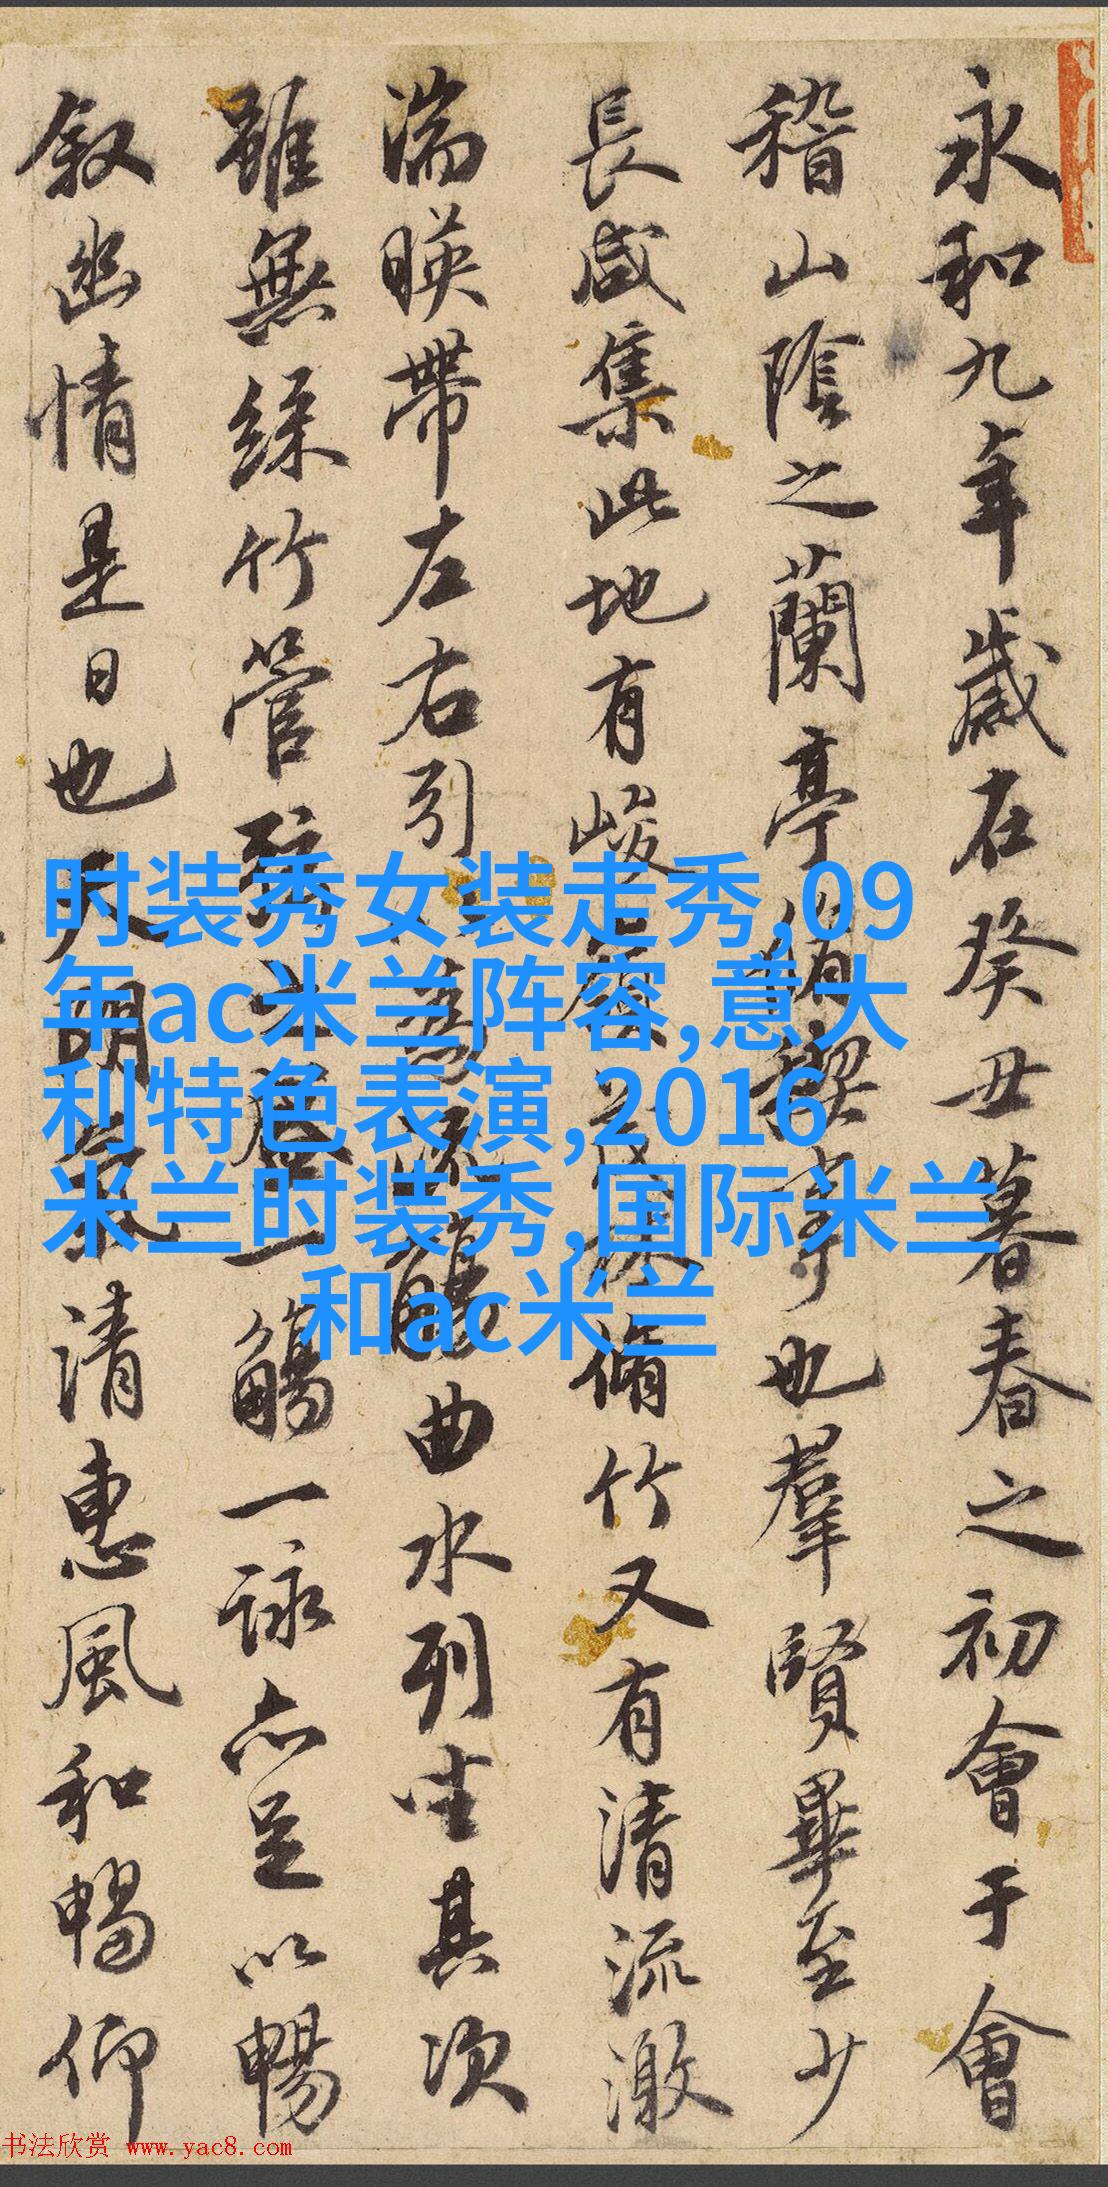 永和九年歲在癸丑暮春之初會于會
稽山陰之蘭亭脩稧事也羣賢畢至少
長咸集此地有峻領茂林脩竹又有清流激
湍暎帶左右引以為流觴曲水列坐其次
雖無絲竹管弦之盛一觴一詠亦足以暢
叙幽情是日也天朗氣清惠風和暢仰
时装秀女装走秀,09
年ac米兰阵容,意大
利特色表演,2016
米兰时装秀,国际米兰
和ac米兰
书法欣赏 www.yac8.com